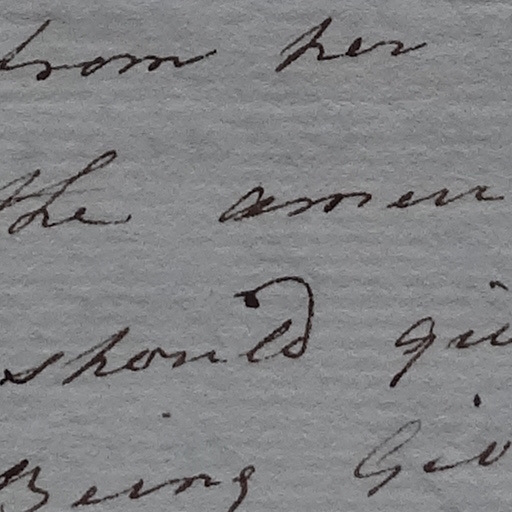 from her
the amen
should giv
Being Giv